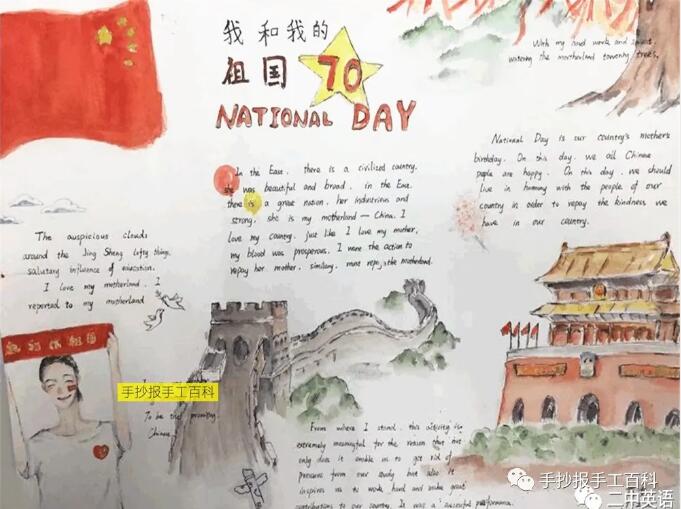 我和我的
祖国 70
NATIONAL DAY
With my hard work and sweat.
watering the motherland towering trees.
In the East. there is a civilized country.
she was beautiful and broad. in the East
there is a great nation. her industrious and
strong. she is my motherland — China. I
love my country. just like I love my mother.
my blood was prosperous. I were the action to
repay her mother. similary. must repay the motherland.
National Day is our country's mother's
birthday. On this day. we all Chinese
people are happy. On this day. we should
live in harmony with the people of our
country in order to repay the kindness we
have in our country.
The auspicious clouds
around the Jing Sheng lofty things.
salutary influence of education.
I love my motherland. I
reported to my motherland
祖国
手抄报手工百科
To be the
Chinese
From where I stand. this activity is
extremely meaningful for the reason that not
only does it enable us to get rid of
pressure from our study but also it
inspires us to work hard and make great
contributions to our country. It was a successful performance.
手抄报手工百科
二中英语